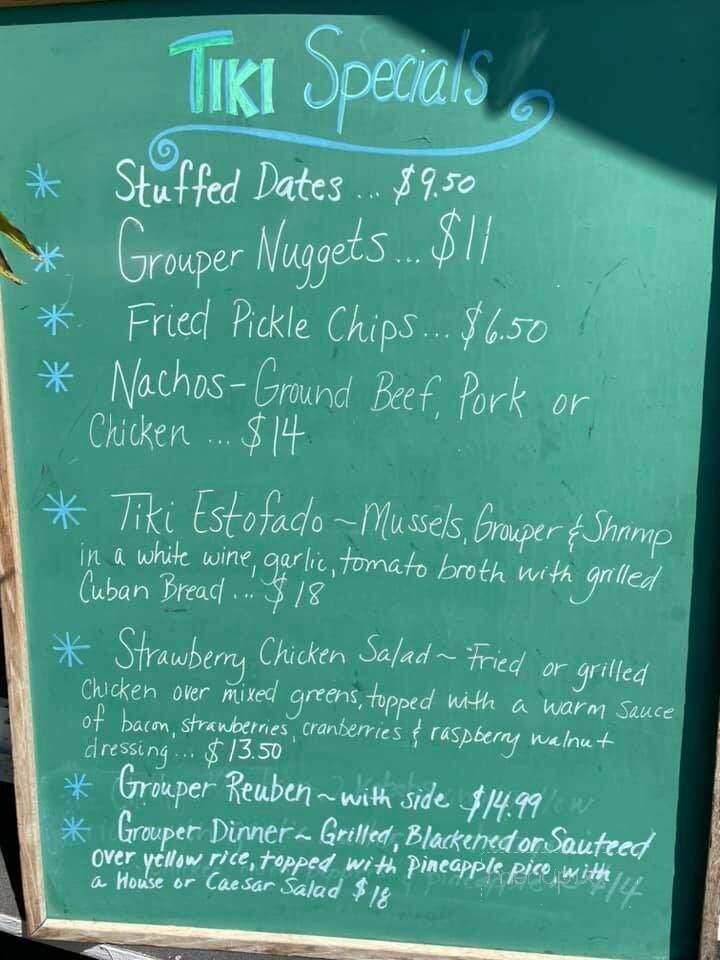 TIKI Specials
* Stuffed Dates ... $9.50
* Grouper Nuggets ... $11
* Fried Pickle Chips ... $6.50
* Nachos - Ground Beef, Pork or
Chicken ... $14
* Tiki Estofado ~ Mussels, Grouper & Shrimp
in a white wine, garlic, tomato broth with grilled
Cuban Bread ... $18
* Strawberry Chicken Salad ~ Fried or grilled
Chicken over mixed greens, topped with a warm sauce
of bacon, strawberries, cranberries & raspberry walnut
dressing ... $13.50
* Grouper Reuben ~ with side $14.99
* Grouper Dinner ~ Grilled, Blackened or Sauteed
over yellow rice, topped with Pineapple pico, with
a House or Caesar Salad $18